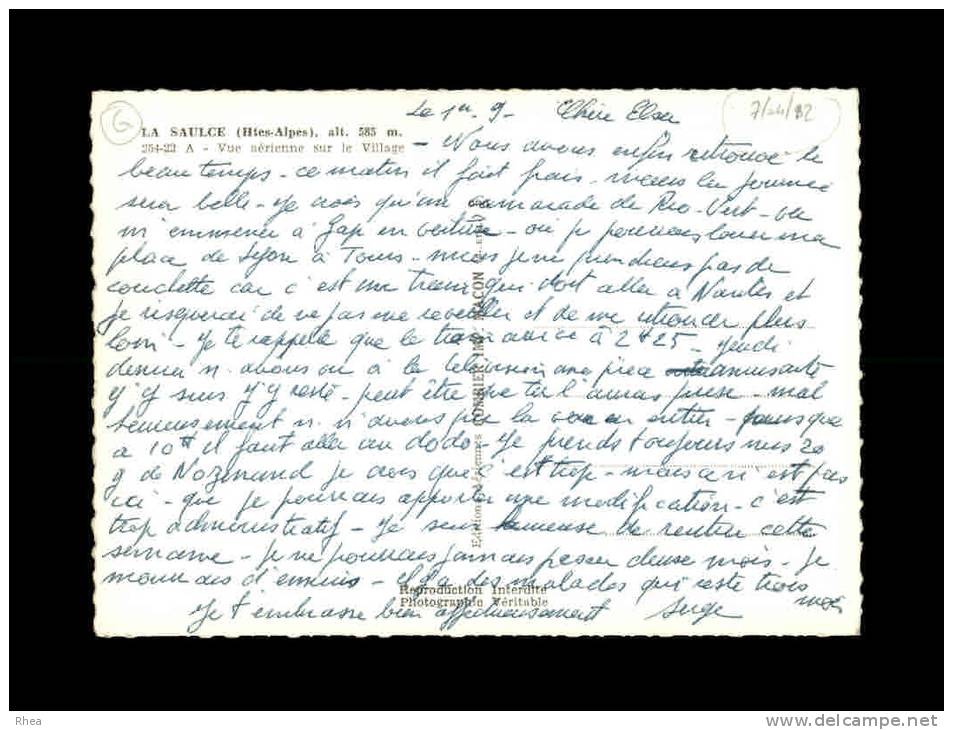 G
7/24/82
LA SAULCE (Htes-Alpes), alt. 585 m.
264-22 A - Vue aérienne sur le Village
Le 1er 9 - Chère Elsa
- Nous avons enfin retrouvé le
beau temps - ce matin il fait frais - mais la journée
sera belle - Je crois qu'un camarade de Rio-Vert - va
m'emmener à Gap en voiture - où je pourrais louer ma
place de Lyon à Tours - mais je ne prendrais pas de
couchette car c'est un train qui doit aller à Nantes et
je risquerai de ne pas me reveiller et de me retrouver plus
loin - Je te rappelle que le train arrive à 2H25 - Jeudi
dernier n. avons vu à la télévision une pièce amusante
"j'y suis j'y reste" - peut être que tu l'auras vue - mal
heureusement n. n'avons pas la voir en entier - puisque
à 10H il faut aller au dodo - Je prends toujours mes 20
g de Nozinand je crois que c'est trop - mais ce n'est pas
ici - que je pourrais apporter une modification - c'est
trop administratif - Je suis heureuse de rentrer cette
semaine - Je ne pourrais jamais passer deux mois - Je
mourrais d'ennuis - Il y a des malades qui reste trois
mois
Je t'embrasse bien affectueusement Serge
COMBIER IMP. MACON
Reproduction Interdite
Photographie Véritable
Rhea
www.delcampe.net